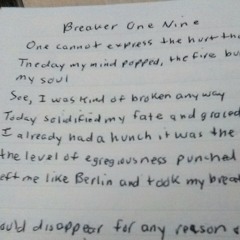 Breaker One Nine
One cannot express the hurt tha
The day my mind popped, the fire bu
my soul
See, I was kind of broken anyway
Today solidified my fate and graced
I already had a hunch it was the
the level of egregiousness punched
eft me like Berlin and took my brea
ould disappear for any reason